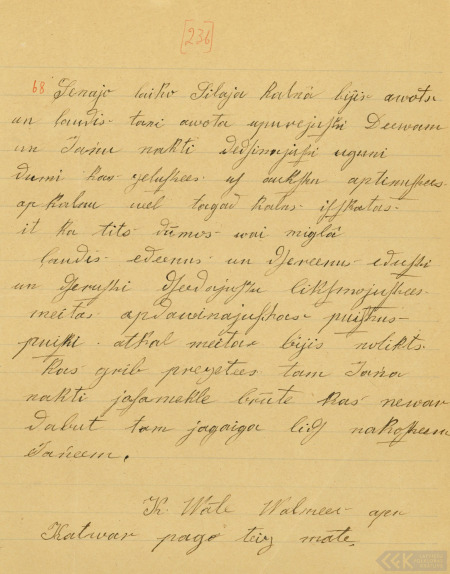 [236]
68 Senajo laiko Silaja kalnâ bijis awots
un laudis tani awota upurejuschi Deewam
un Jaņu nakti dedsinajuschi uguni
dumi kas zelusches us aukschu aptinusches
ap kalnu wel tagad kalns isskatas
it ka tits dūmos wai miglâ
laudis edeenus un dsereenus eduschi
un dseruschi dseedajuschi liksmojusches
meitas apdawinajuschas puischus
puischi atkal meitas bijis nolikts
kas grib prezetees tam Jaņa
nakti jasamekle brute kas newar
dabut tam jagaida lidſ nakoscheem
Jaņeem.
K. Wate Walmeer. apr
Katwar pagò teiz mate.